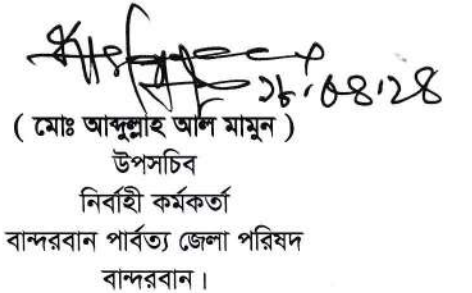 ( মোঃ আব্দুল্লাহ আল মামুন )
উপসচিব
নির্বাহী কর্মকর্তা
বান্দরবান পার্বত্য জেলা পরিষদ
বান্দরবান।